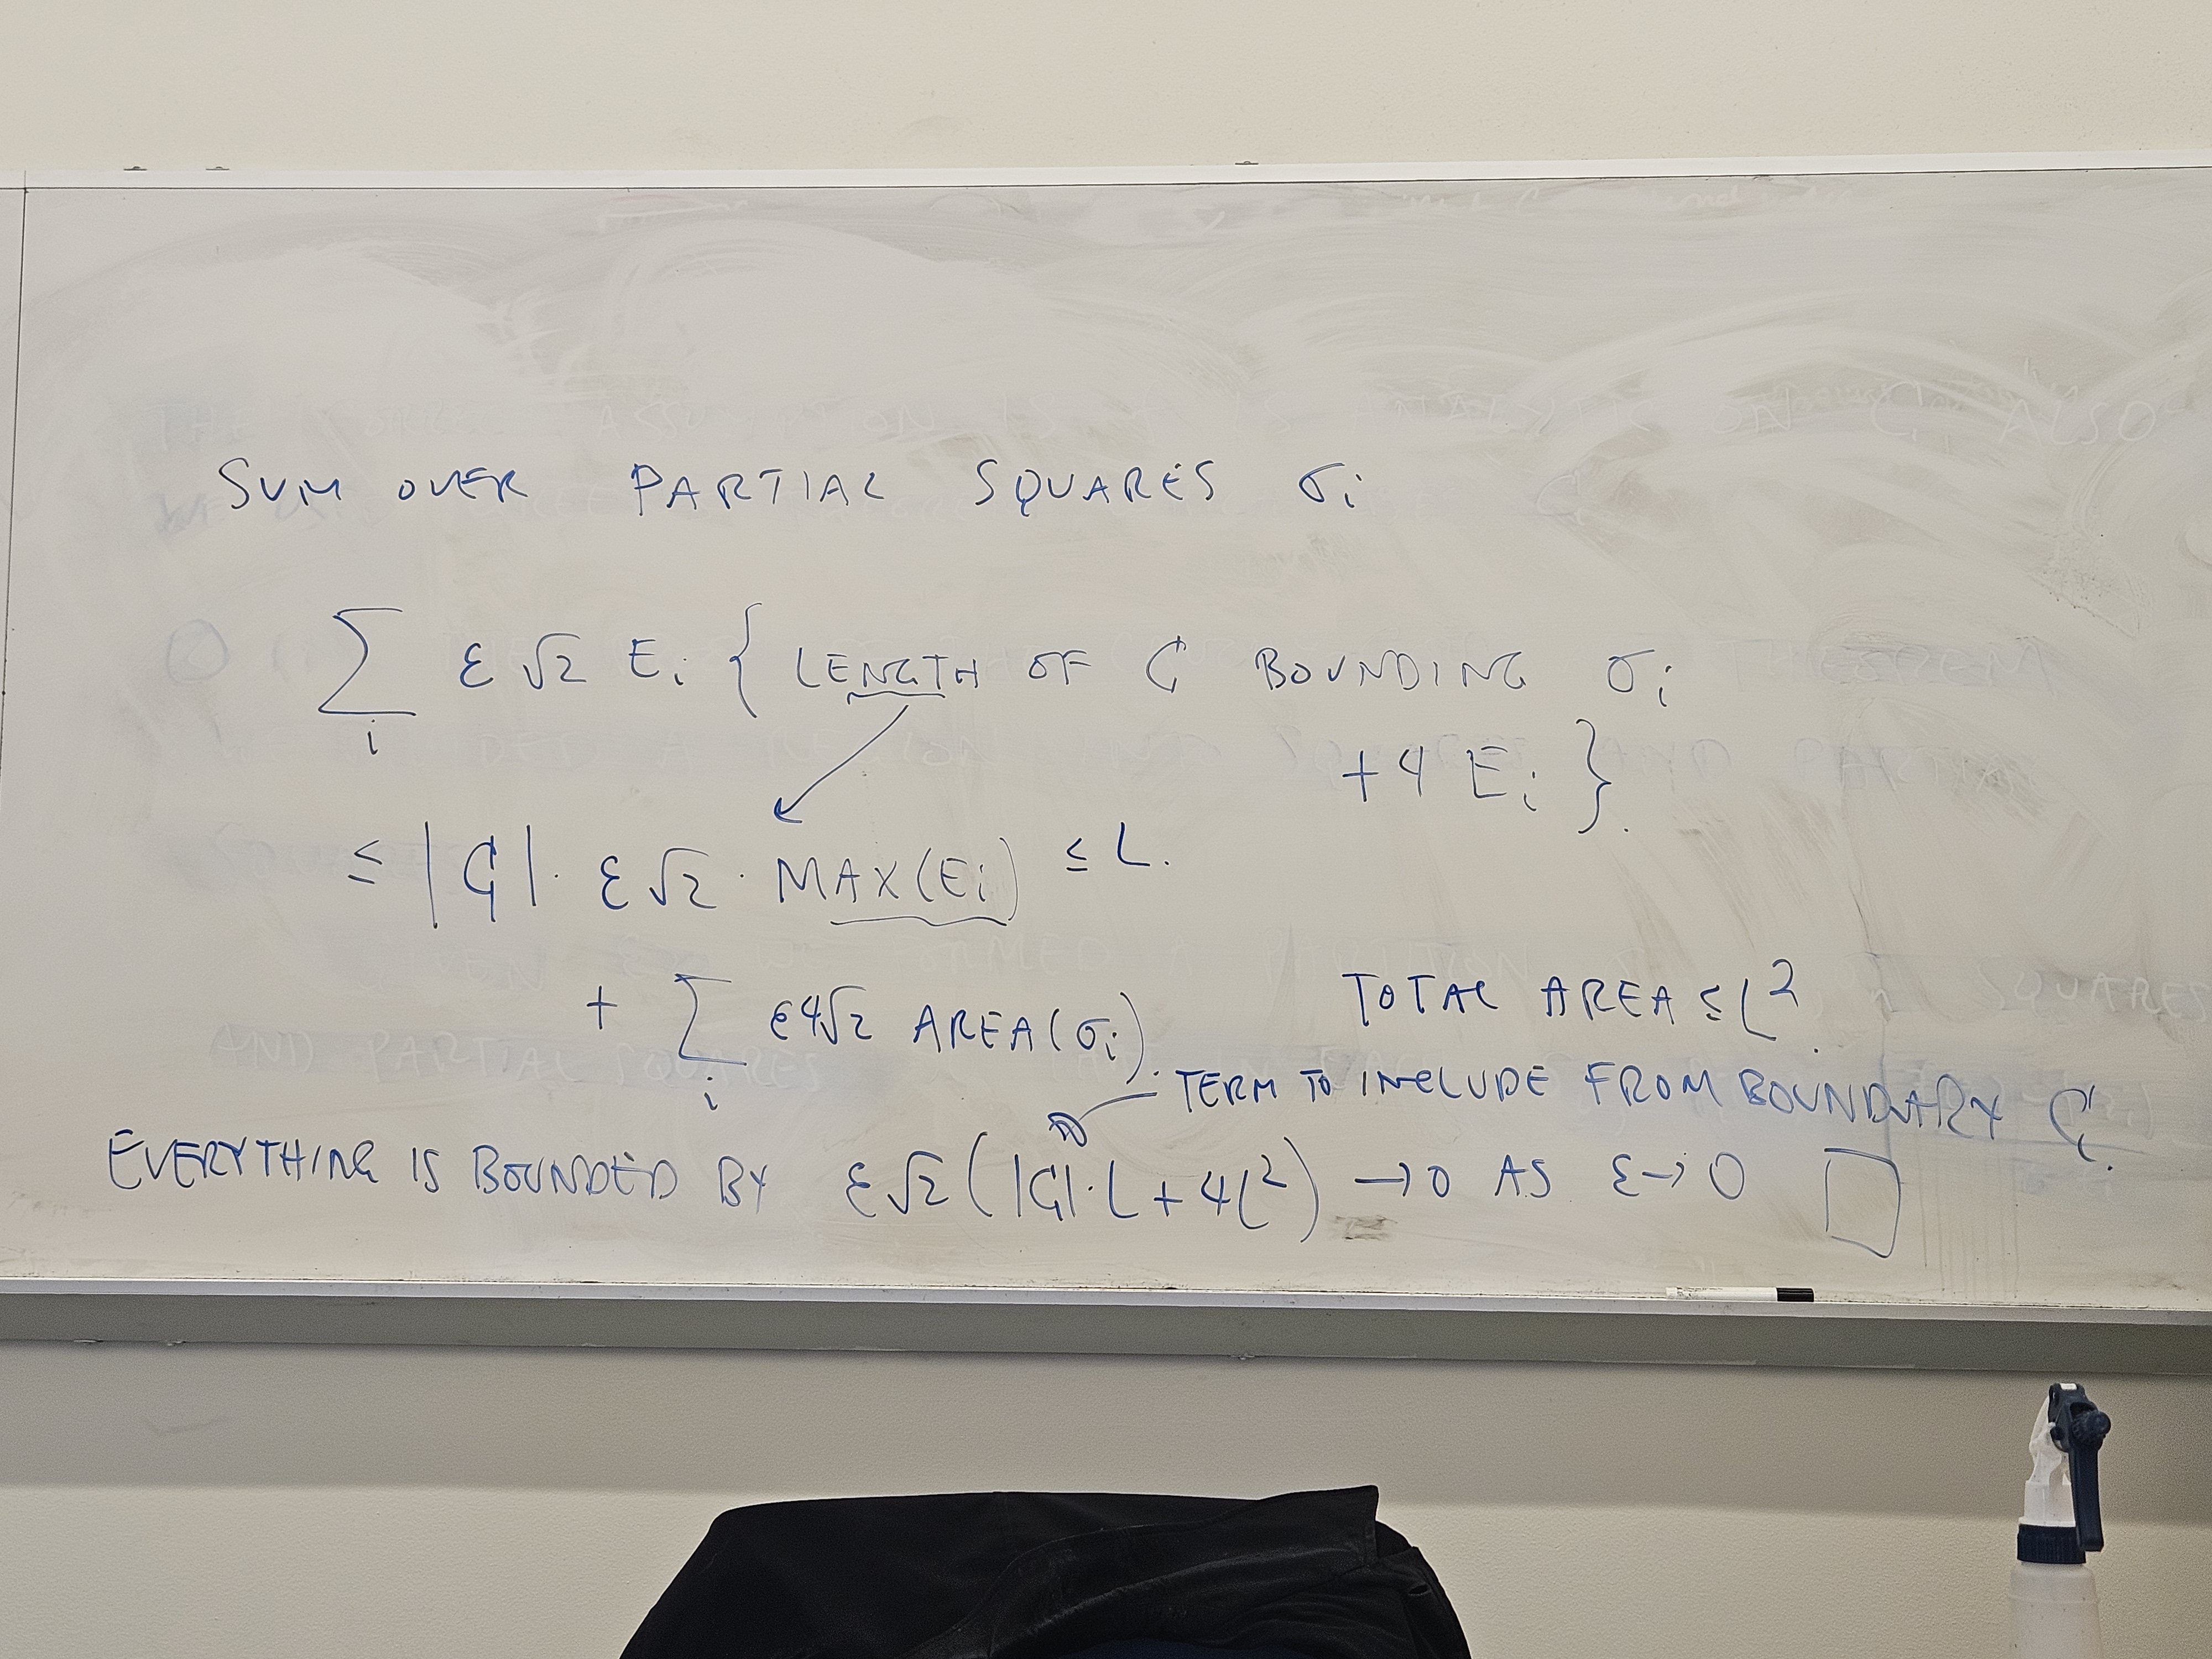 SUM OVER PARTIAL SQUARES σi
∑i ε√2 Ei { LENGTH OF C BOUNDING σi
+ 4 Ei }.
≤ |C| · ε√2 · MAX(Ei) ≤ L.
+ ∑i ε4√2 AREA(σi). TOTAL AREA ≤ L².
TERM TO INCLUDE FROM BOUNDARY C.
EVERYTHING IS BOUNDED BY ε√2 (|C|·L + 4L²) → 0 AS ε → 0 □